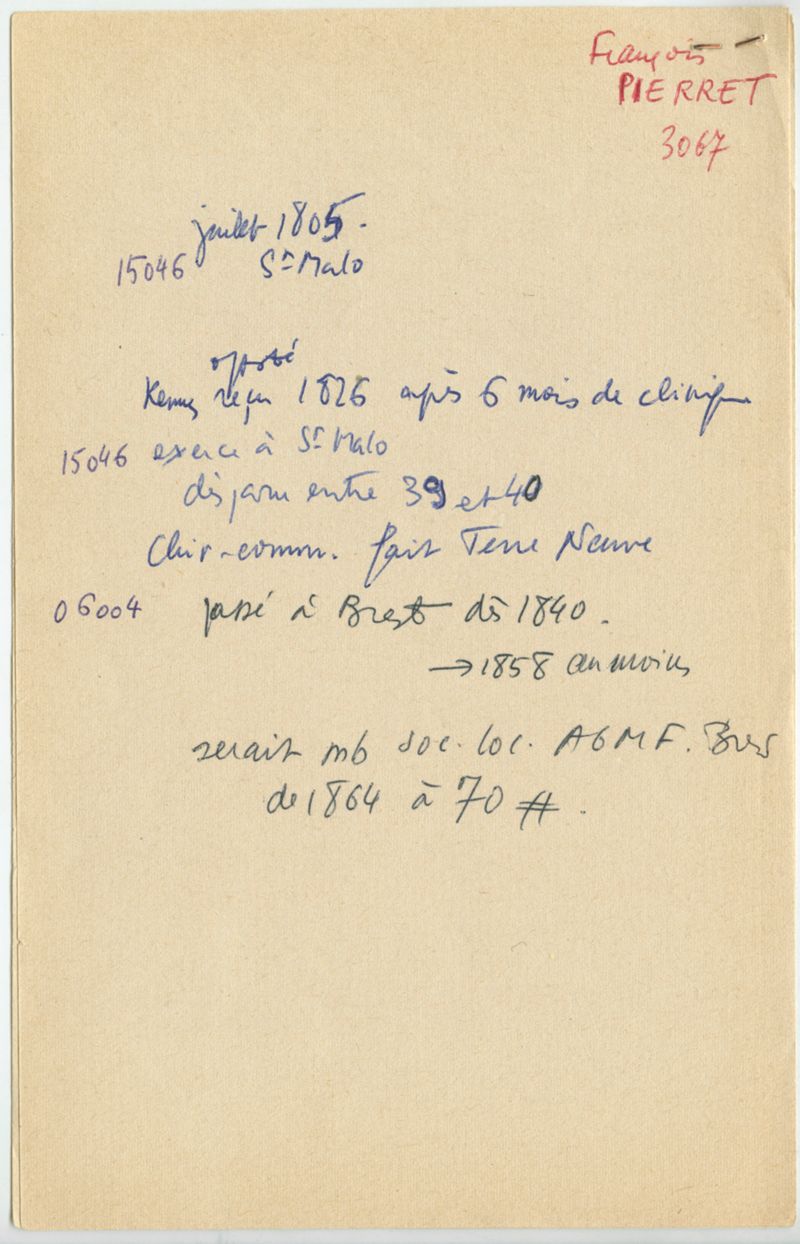 François
PIERRET
3067
juillet 1805.
15046 St Malo
opposé
Rennes reçu 1826 après 6 mois de clinique
15046 exerce à St Malo
disparu entre 39 et 40
Chir-comm. fait Terre Neuve
06004 passé à Brest dès 1840.
→1858 au moins
serait mb soc. loc. AGMF. Brest
de 1864 à 70 #.